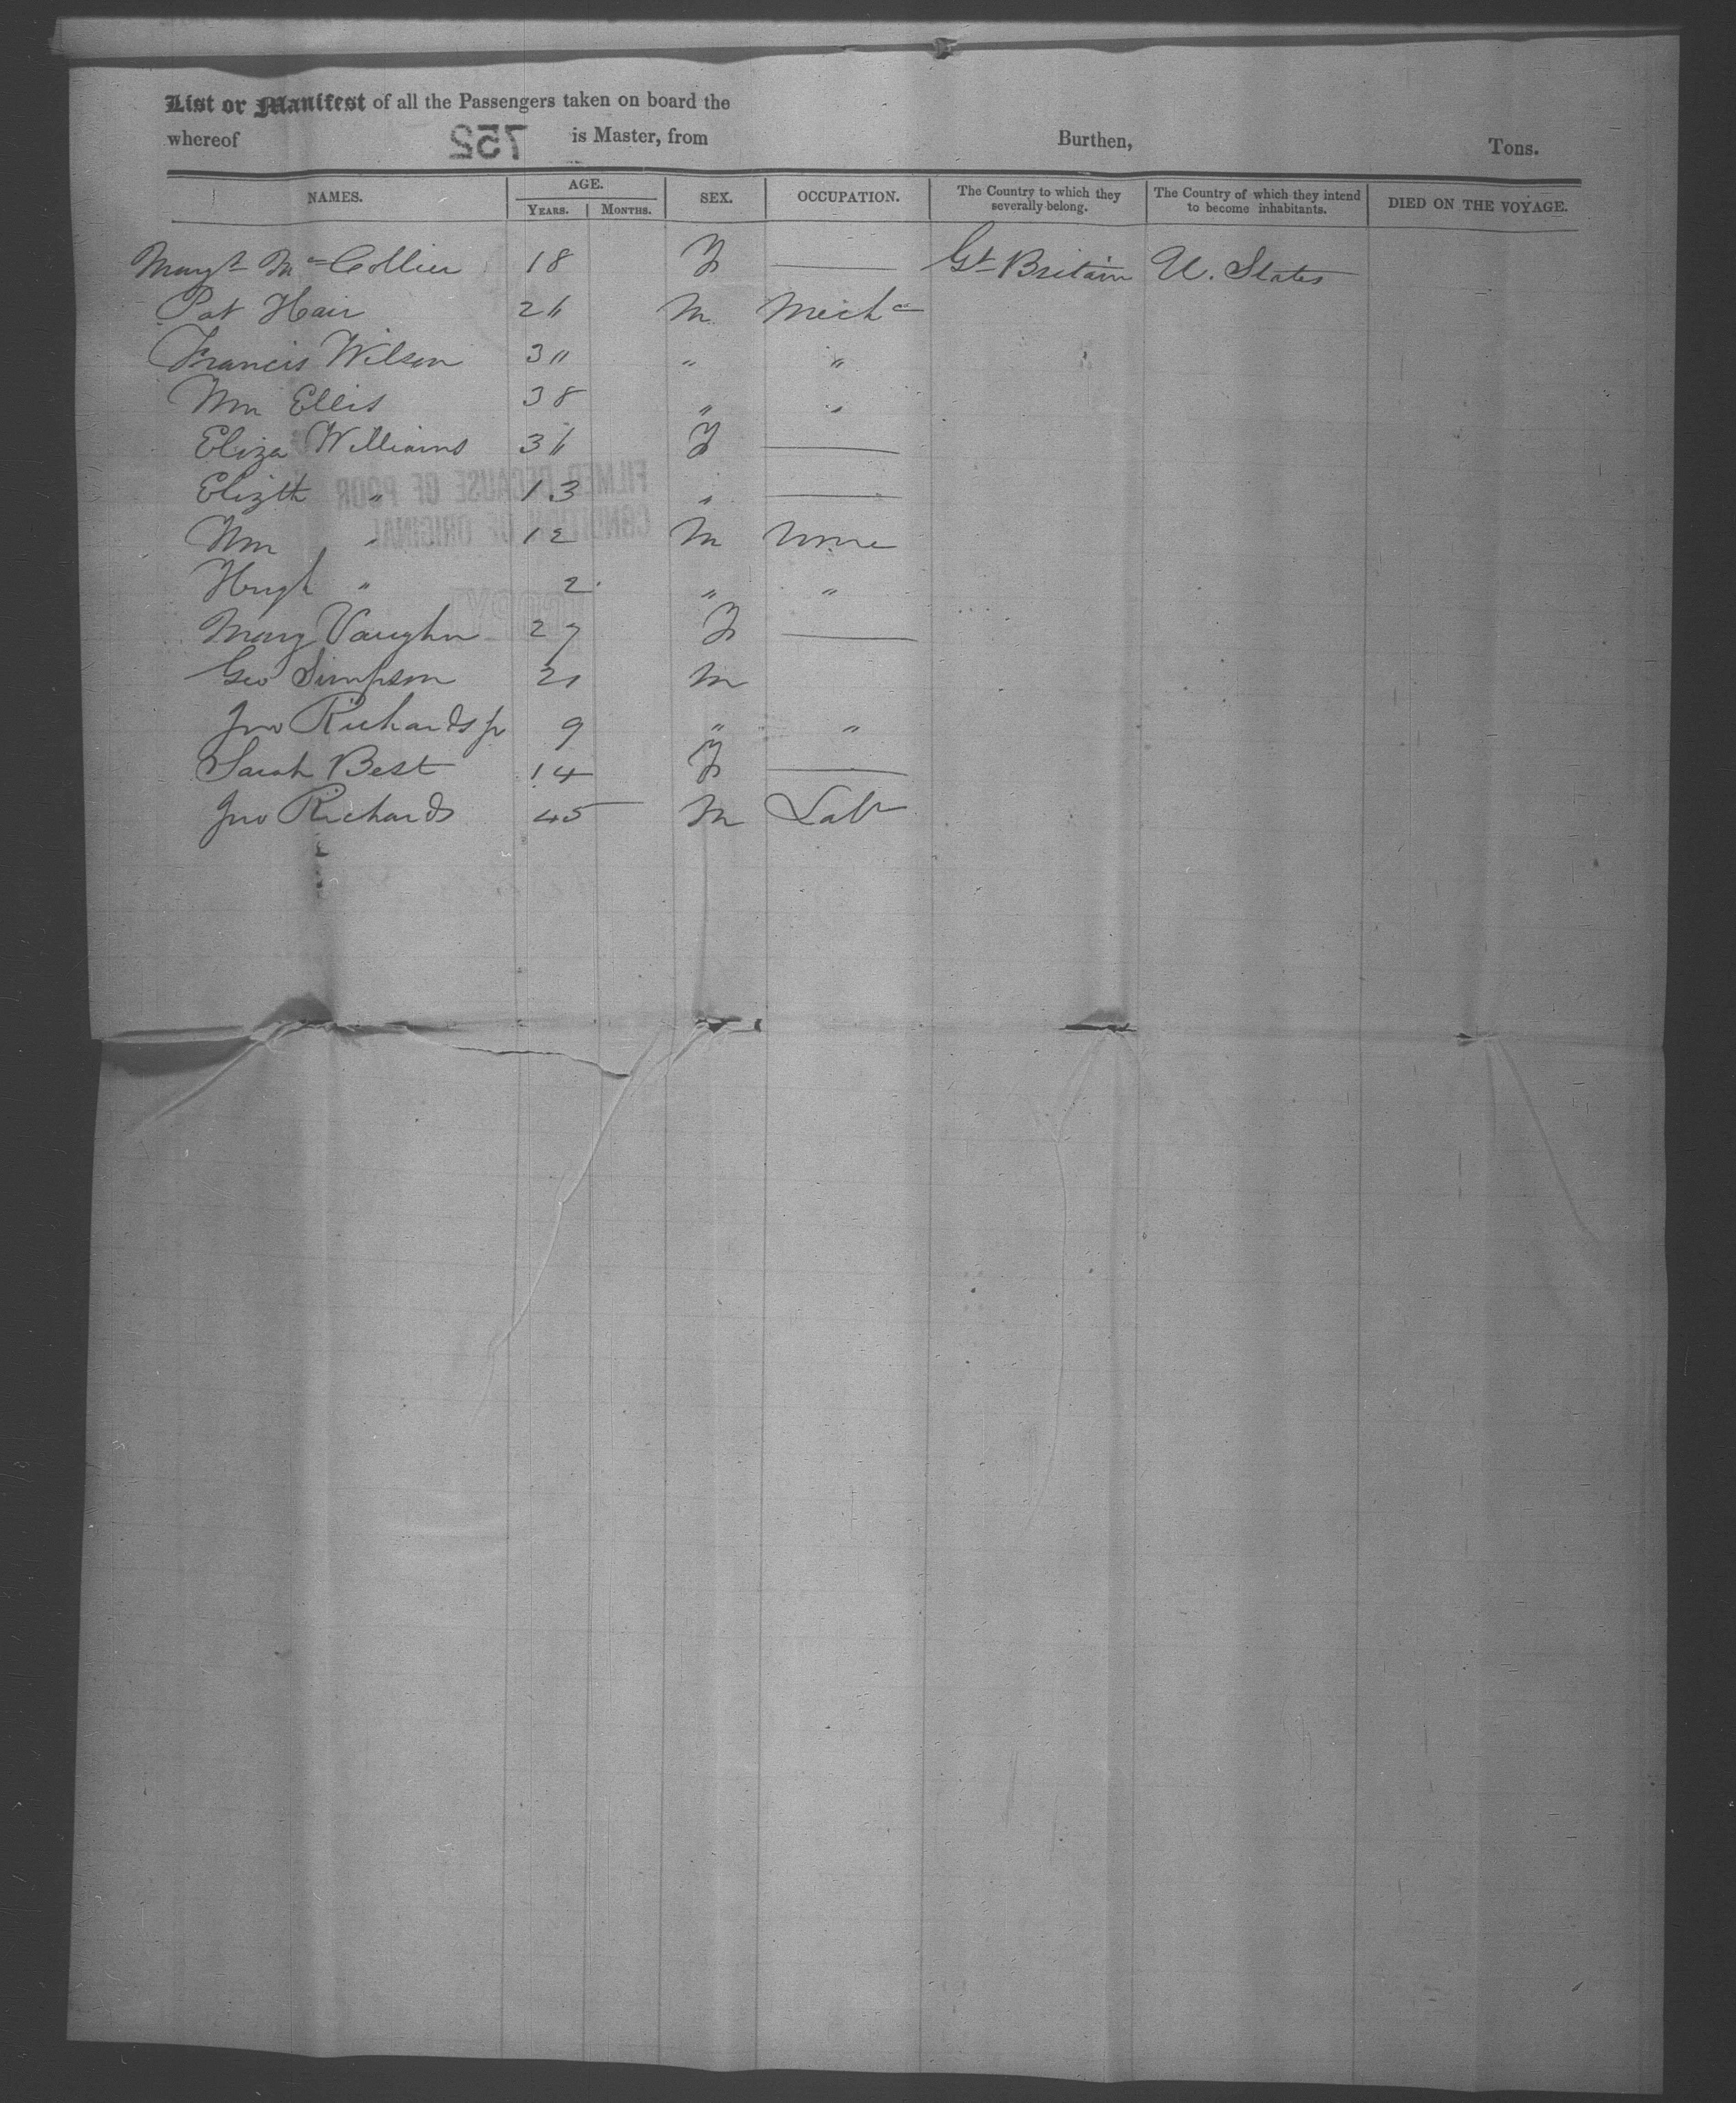 List or Manifest of all the Passengers taken on board the
whereof 752 is Master, from Burthen, Tons.
NAMES. AGE. SEX. OCCUPATION. The Country to which they severally belong. The Country of which they intend to become inhabitants. DIED ON THE VOYAGE.
YEARS. MONTHS.
Margt Mc Collier 18 F — Gt Britain U. States
Pat Hair 2 M Mechc
Francis Wilson 3 " "
Wm Ellis 38 " "
Eliza Williams 3 F —
Elizth " 13 " —
Wm " 12 M None
Hugh " 2 " "
Mary Vaughn 27 F —
Geo Simpson 21 M
Jno Richards jr 9 " "
Sarah Best 14 F —
Jno Richards 45 M Labr
FILMED BECAUSE OF POOR
CONDITION OF ORIGINAL